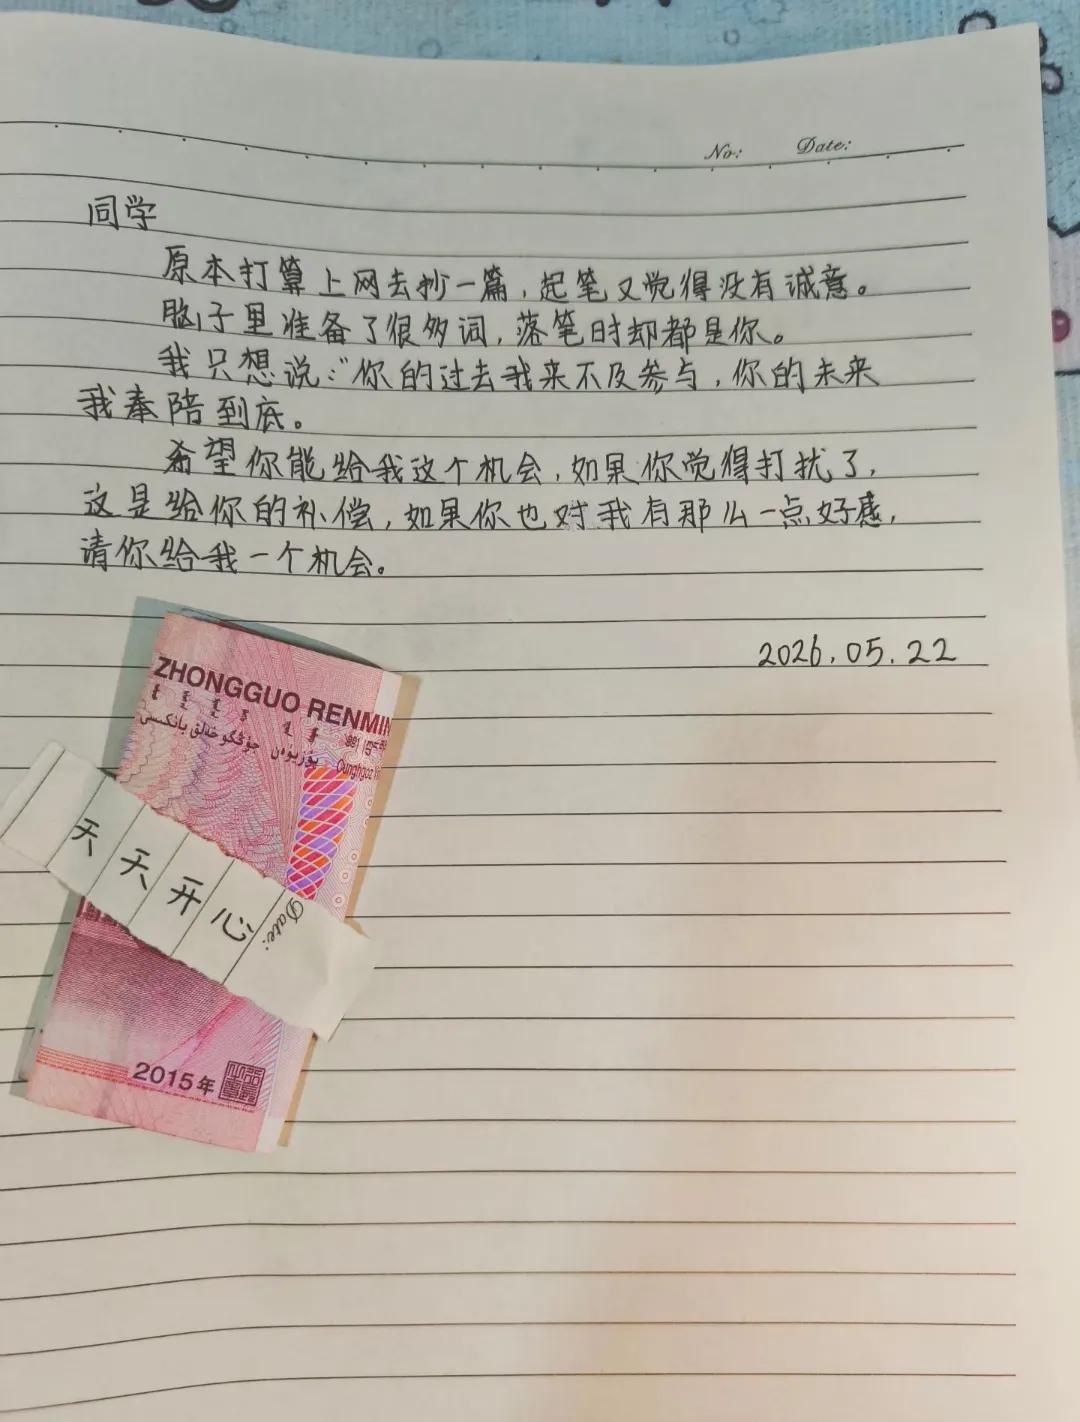 No: Date:
同学
原本打算上网去抄一篇，起笔又觉得没有诚意。
脑子里准备了很多词，落笔时却都是你。
我只想说：“你的过去我来不及参与，你的未来
我奉陪到底。
希望你能给我这个机会，如果你觉得打扰了，
这是给你的补偿，如果你也对我有那么一点好感，
请你给我一个机会。
2026.05.22
ZHONGGUO RENMIN
天天开心
Date:
2015年